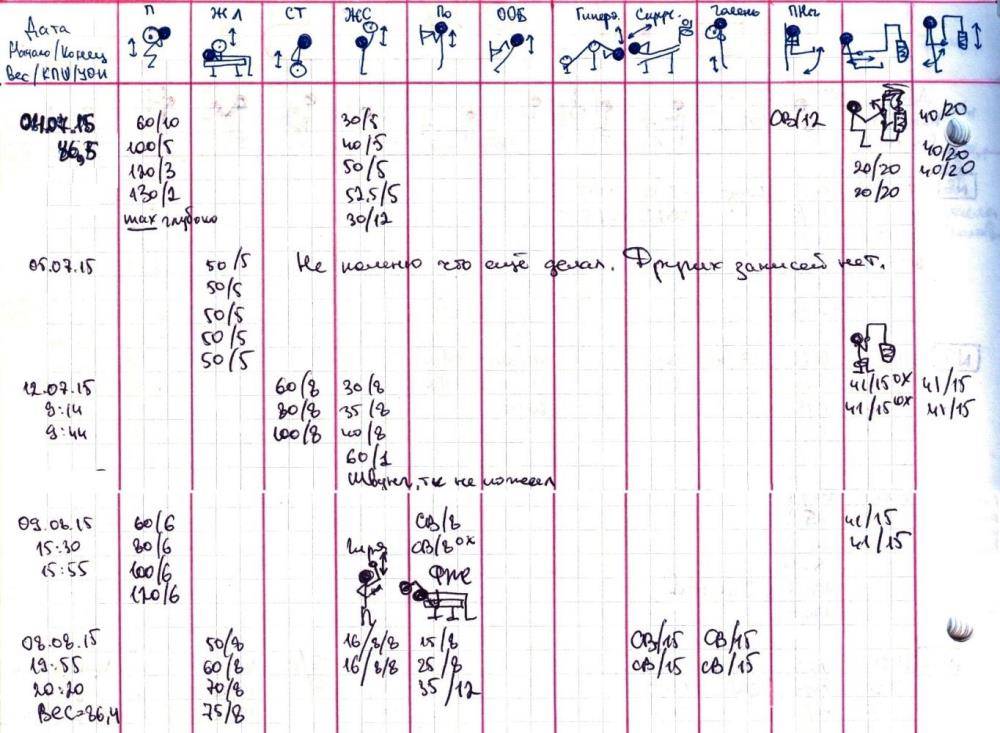 П ЖЛ СТ ЖС По ООБ Гиперэ. Скруч. Голень ПНог
Дата
Начало/Конец
Вес/КПШ/УОИ
04.07.15 60/10 30/5 СВ/12 40/20
86,5 100/5 40/5 40/20
120/3 50/5 20/20 40/20
130/2 52,5/5 20/20
max глубоко 30/12
05.07.15 50/5 Не помню что ещё делал. Других записей нет.
50/5
50/5
50/5
50/5
12.07.15 60/8 30/8 41/15 ОХ 41/15
9:14 80/8 35/8 41/15 ЮХ 41/15
9:44 100/8 40/8
60/1
Швунг, тк не пошел
09.08.15 60/6 СВ/8 41/15
15:30 80/6 Гиря СВ/8 ОХ 41/15
15:55 100/6
120/6
08.08.15 50/8 16/8/8 15/8 СВ/15 СВ/15
19:55 60/8 16/8/8 25/8 СВ/15 СВ/15
20:20 70/8 35/12
Вес=86,4 75/8